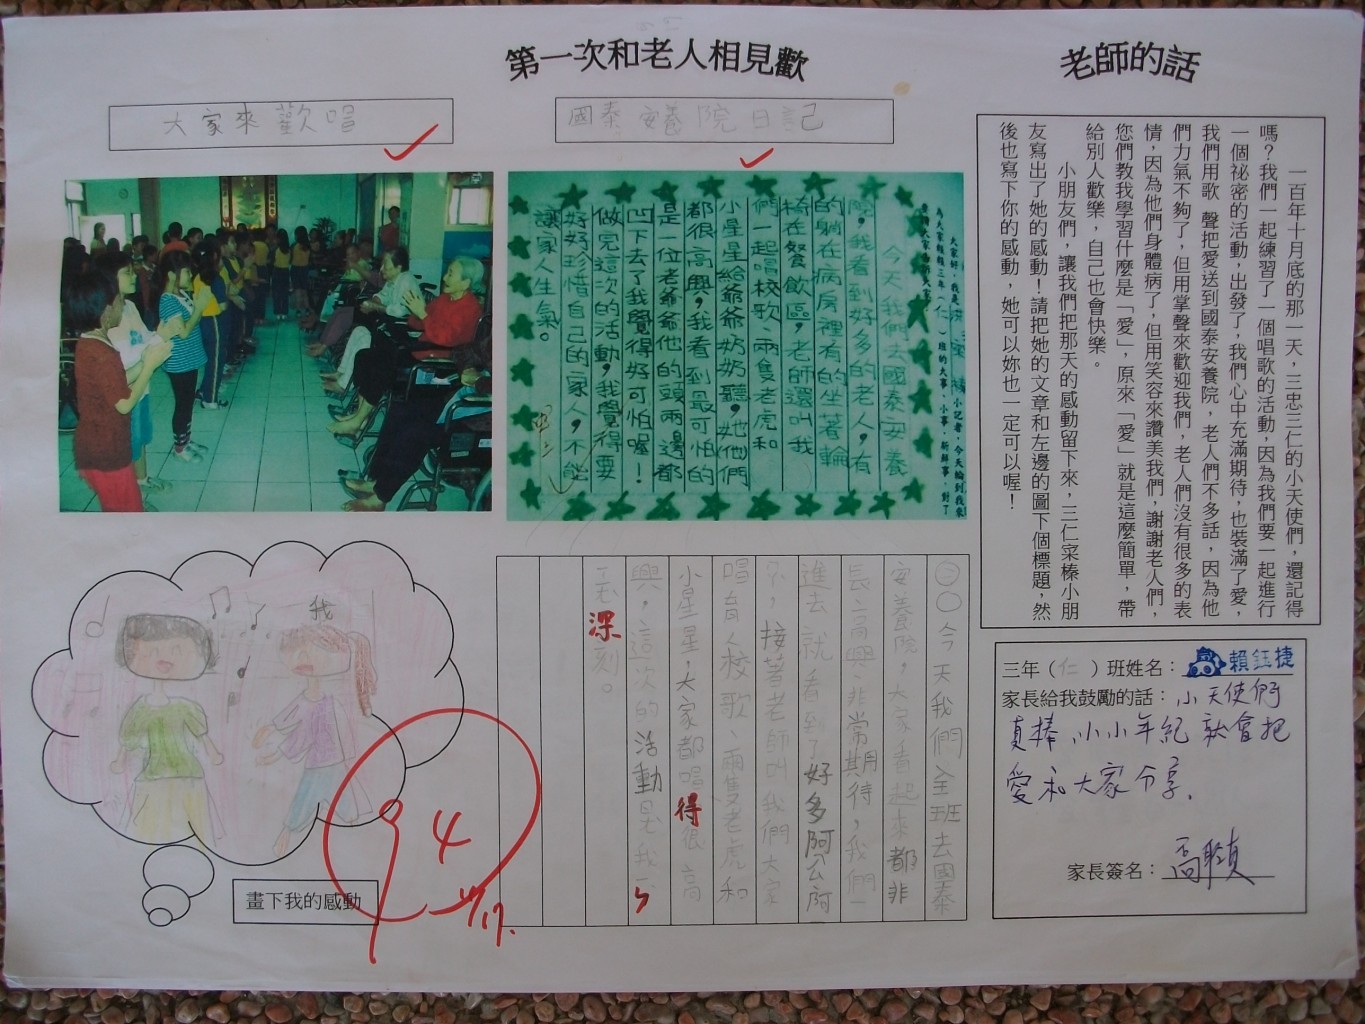 第一次和老人相見歡
老師的話
大家來歡唱
國泰安養院日記
一百年十月底的那一天，三忠三仁的小天使們，還記得
嗎？我們一起練習了一個唱歌的活動，因為我們要一起進行
一個祕密的活動，出發了，我們心中充滿期待，也裝滿了愛，
我們用歌 聲把愛送到國泰安養院，老人們不多話，因為他
們力氣不夠了，但用掌聲來歡迎我們，老人們沒有很多的表
情，因為他們身體病了，但用笑容來讚美我們，謝謝老人們，
您們教我學習什麼是「愛」，原來「愛」就是這麼簡單，帶
給別人歡樂，自己也會快樂。
小朋友們，讓我們把那天的感動留下來，三仁寀榛小朋
友寫出了她的感動！請把她的文章和左邊的圖下個標題，然
後也寫下你的感動，她可以妳也一定可以喔！
大家好，我是
小記者，今天輪到我來
為大家報報三年（仁）班的大事、小事、新鮮事，對了
今天我們去國泰安養
院，我看到好多的老人，有
的躺在病房裡有的坐著輪
椅在餐飲區，老師還叫我
們一起唱校歌、兩隻老虎和
小星星給爺爺奶奶聽，她他們
都很高興，我看到最可怕的
是一位老爺爺他的頭兩邊都
凹下去了我覺得好可怕喔！
做完這次的活動，我覺得要
好好珍惜自己的家人，不能
讓家人生氣。
今天我們全班去國泰
安養院，大家看起來都非
常高興、非常期待，我們一
進去就看到了好多阿公阿
，接著老師叫我們大家
唱育人校歌、兩隻老虎和
小星星，大家都唱得很高
興，這次的活動是我
深刻。
我
94
畫下我的感動
三年（仁）班姓名：賴鈺捷
家長給我鼓勵的話：小天使們
真棒 小小年紀就會把
愛和大家分享.
家長簽名：